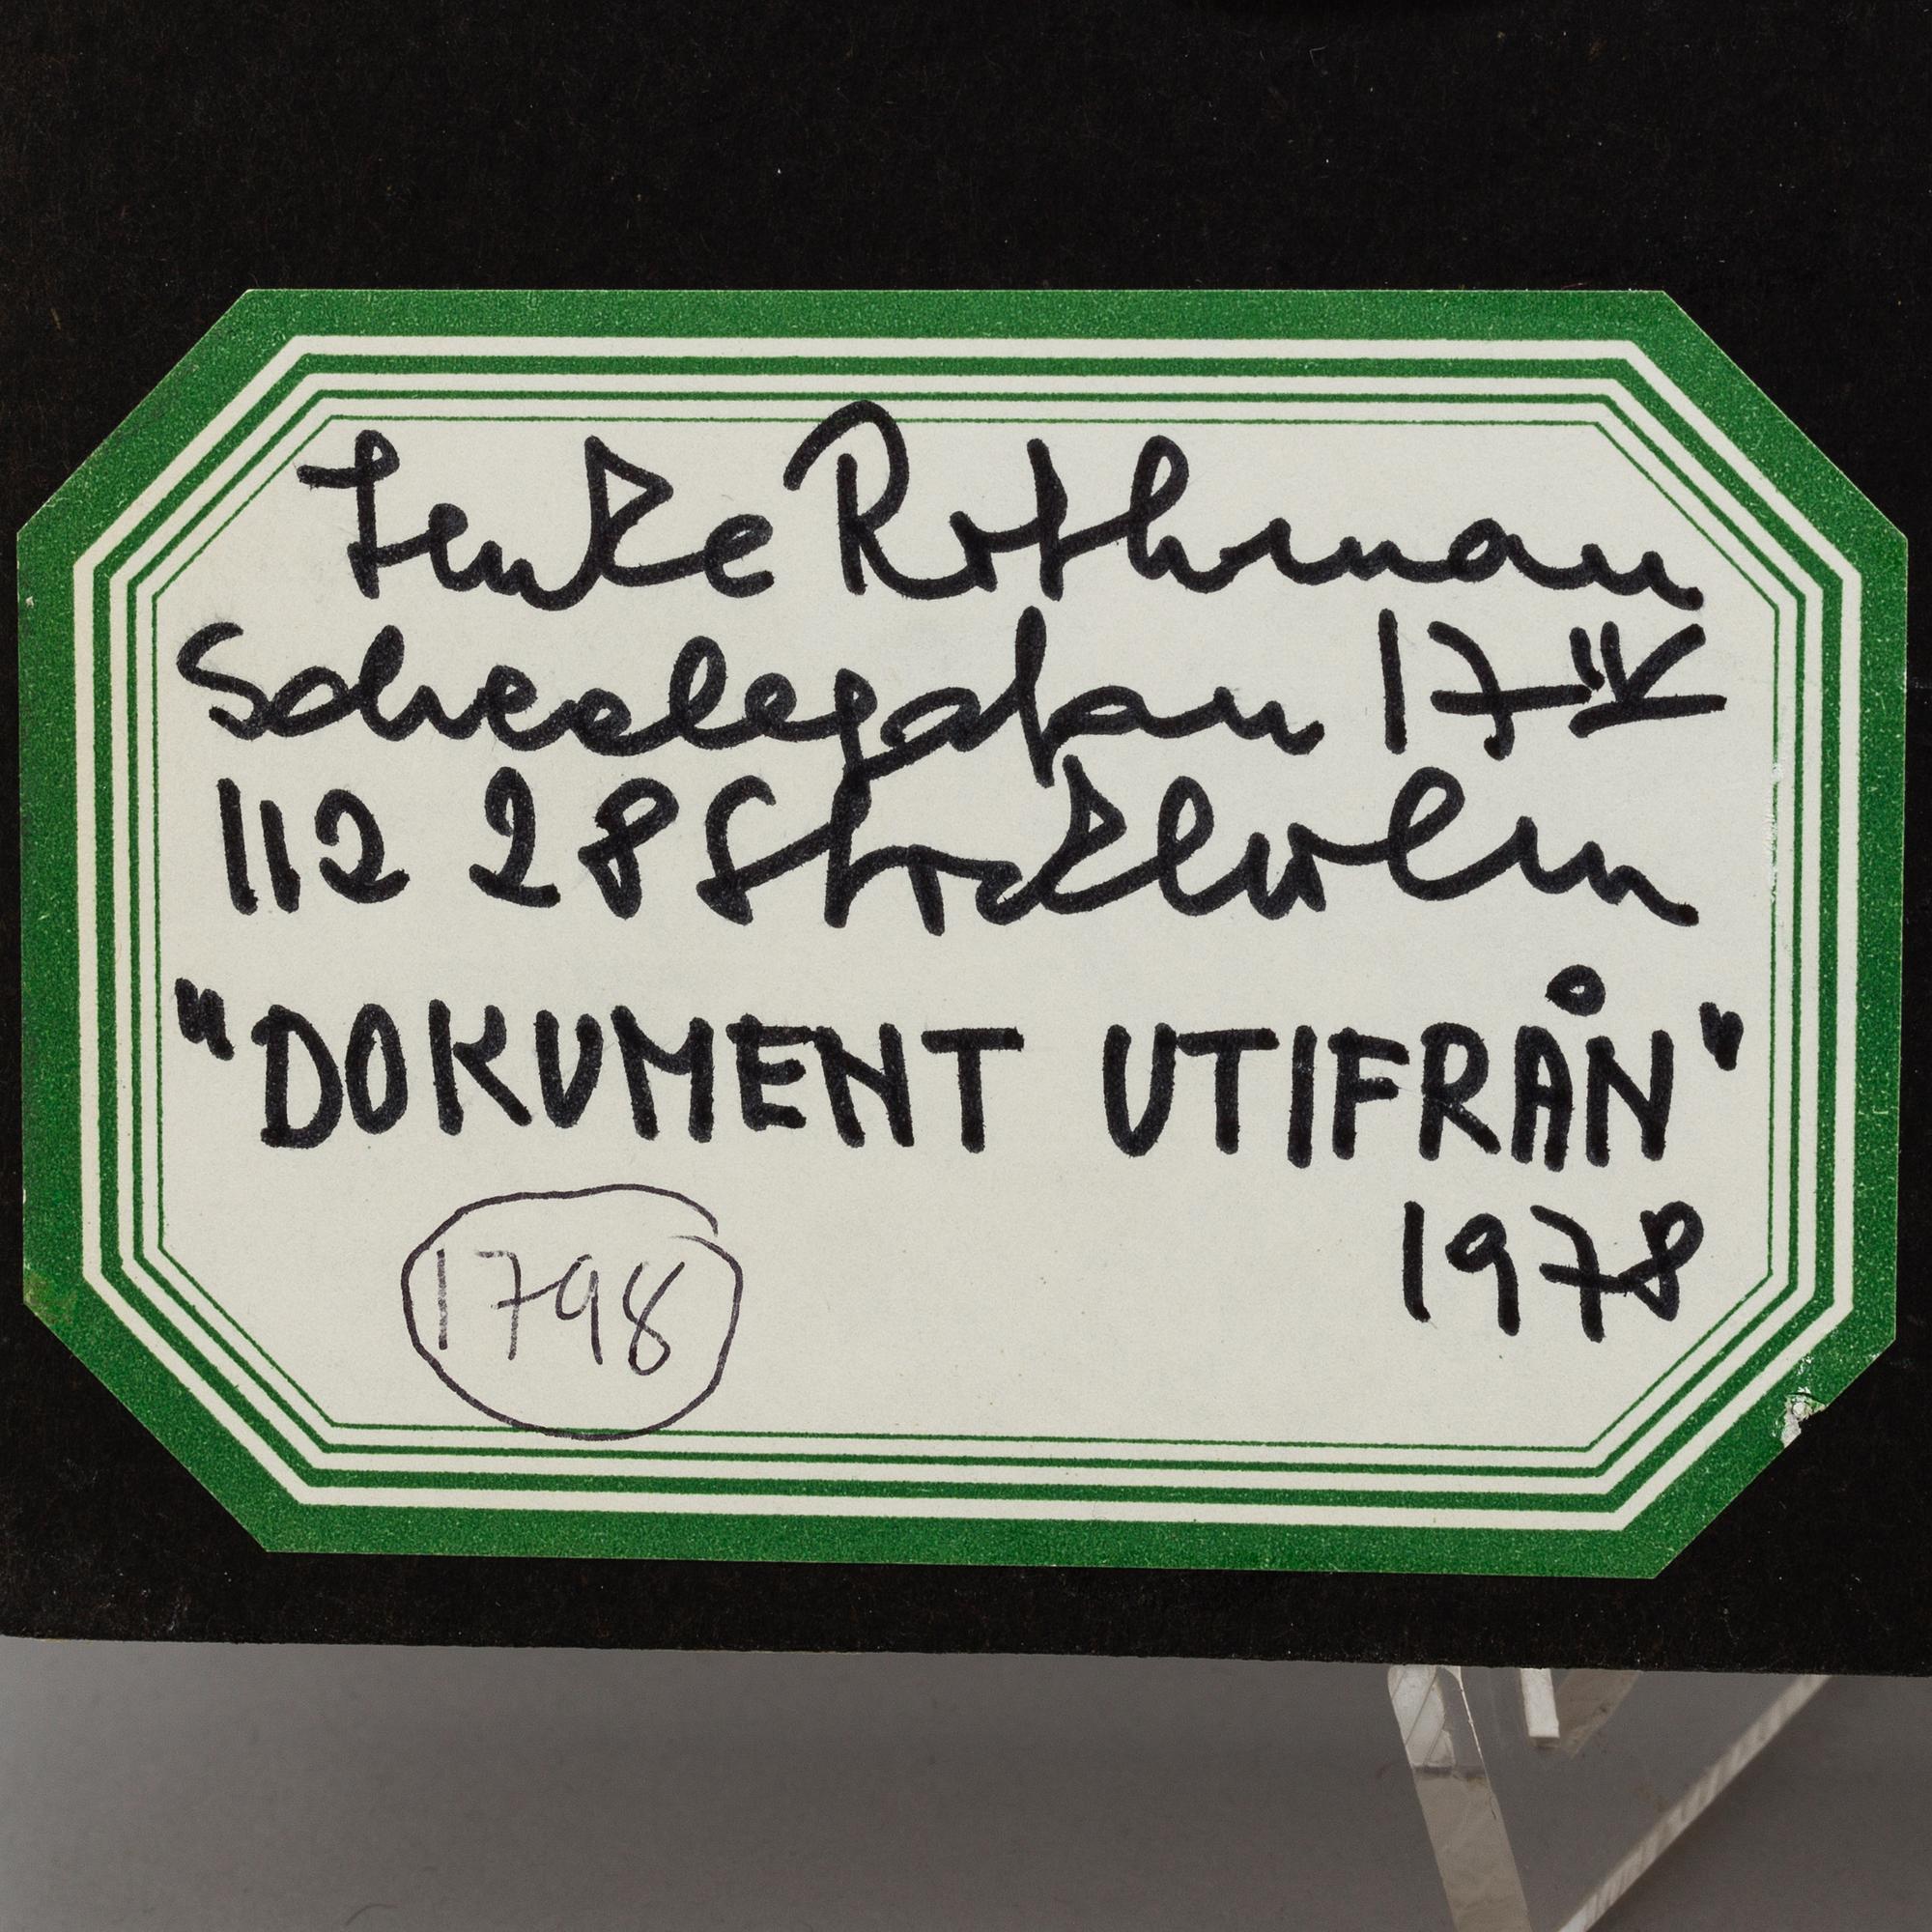 Jenke Rothman
Scheelegatan 17 IV
112 28 Stockholm
"DOKUMENT UTIFRÅN"
1978
1798